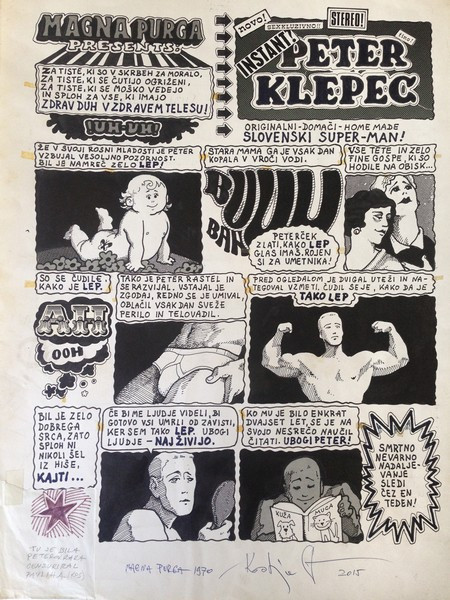 MAGNA PURGA
PRESENTS:
ZA TISTE, KI SO V SKRBEH ZA MORALO,
ZA TISTE, KI SE ČUTIJO OGROŽENI,
ZA TISTE, KI SE MOŠKO VEDEJO
IN SPLOH ZA VSE, KI IMAJO
ZDRAV DUH V ZDRAVEM TELESU!
!UH-UH!
novo!
SEXKLUZIVNO!!
STEREO!
fino!
INSTANT!
PETER
KLEPEC
ORIGINALNI-DOMAČI-HOME MADE
SLOVENSKI SUPER-MAN!
ŽE V SVOJI ROSNI MLADOSTI JE PETER
VZBUJAL VESOLJNO POZORNOST.
BIL JE NAMREČ ZELO LEP!
STARA MAMA GA JE VSAK DAN
KOPALA V VROČI VODI.
BUUU
BAN
PETERČEK
ZLATI, KAKO LEP
GLAS IMAŠ. ROJEN
SI ZA UMETNIKA!
VSE TETE IN ZELO
FINE GOSPE, KI SO
HODILE NA OBISK...
SO SE ČUDILE
KAKO JE LEP.
AH
OOH
TAKO JE PETER RASTEL IN
SE RAZVIJAL. VSTAJAL JE
ZGODAJ, REDNO SE JE UMIVAL,
OBLAČIL VSAK DAN SVEŽE
PERILO IN TELOVADIL.
PRED OGLEDALOM JE DVIGAL UTEŽI IN NA-
TEGOVAL VZMETI. ČUDIL SE JE, KAKO DA JE
TAKO LEP
BIL JE ZELO
DOBREGA
SRCA, ZATO
SPLOH NI
NIKOLI ŠEL
IZ HIŠE,
KAJTI...
ČE BI ME LJUDJE VIDELI, BI
GOTOVO VSI UMRLI OD ZAVISTI,
KER SEM TAKO LEP. UBOGI
LJUDJE - NAJ ŽIVIJO.
KO MU JE BILO ENKRAT
DVAJSET LET, SE JE NA
SVOJO NESREČO NAUČIL
ČITATI. UBOGI PETER!
KUŽA
MUCA
SMRTNO
NEVARNO
NADALJE-
VANJE
SLEDI
ČEZ EN
TEDEN!
TU JE BILA
MAGNA PURGA 1970
2015